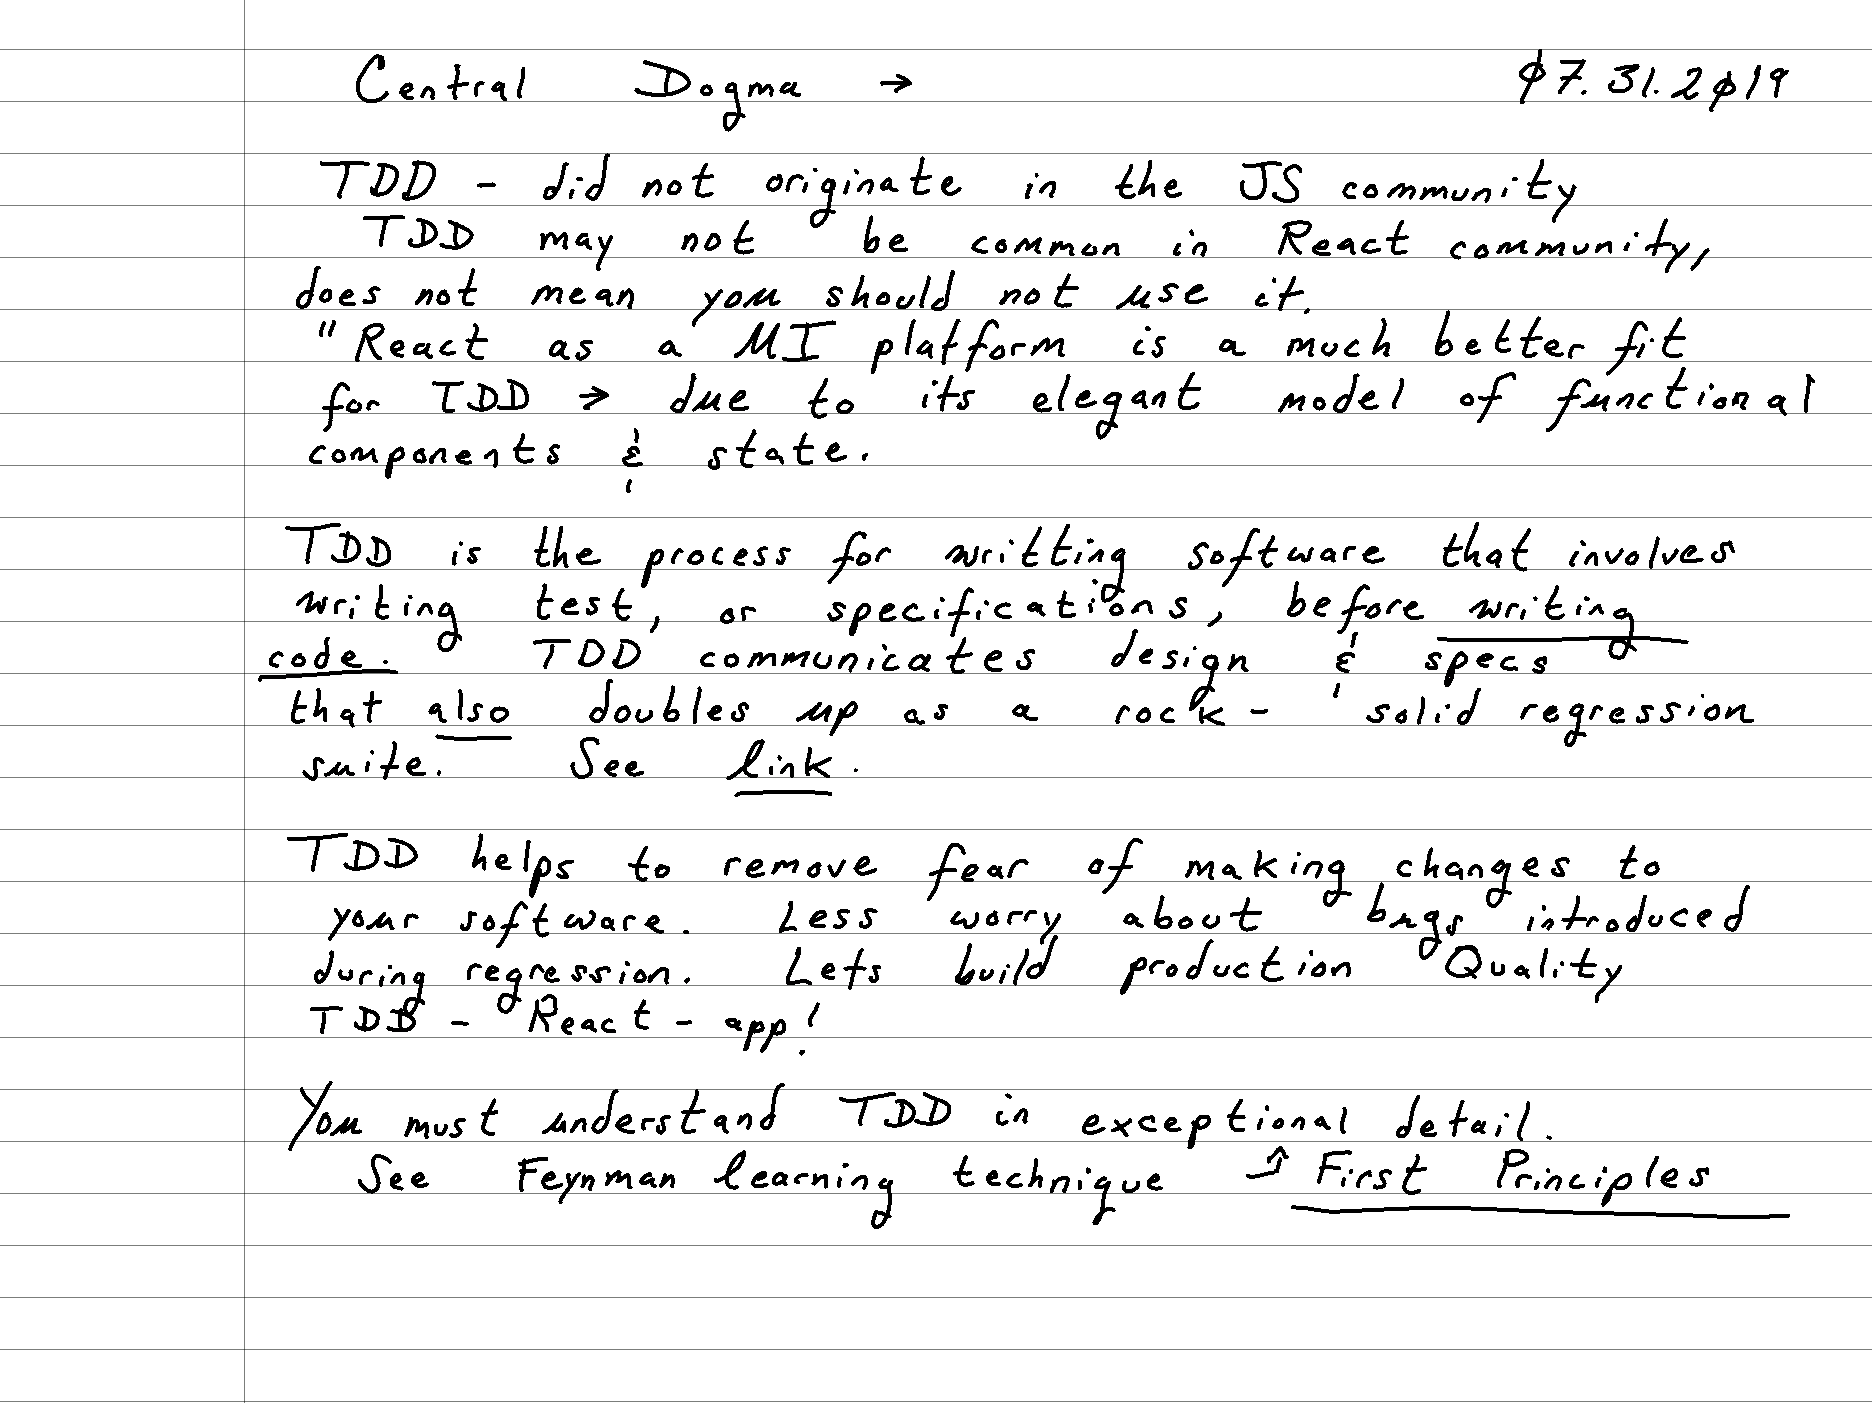 Central Dogma → 07.31.2019
TDD - did not originate in the JS community
TDD may not be common in React community,
does not mean you should not use it.
"React as a UI platform is a much better fit
for TDD → due to its elegant model of functional
components & state.
TDD is the process for writting software that involves
writing test, or specifications, before writing
code. TDD communicates design & specs
that also doubles up as a rock - solid regression
suite. See link.
TDD helps to remove fear of making changes to
your software. Less worry about bugs introduced
during regression. Lets build production Quality
TDD - React - app!
You must understand TDD in exceptional detail.
See Feynman learning technique ⤴ First Principles